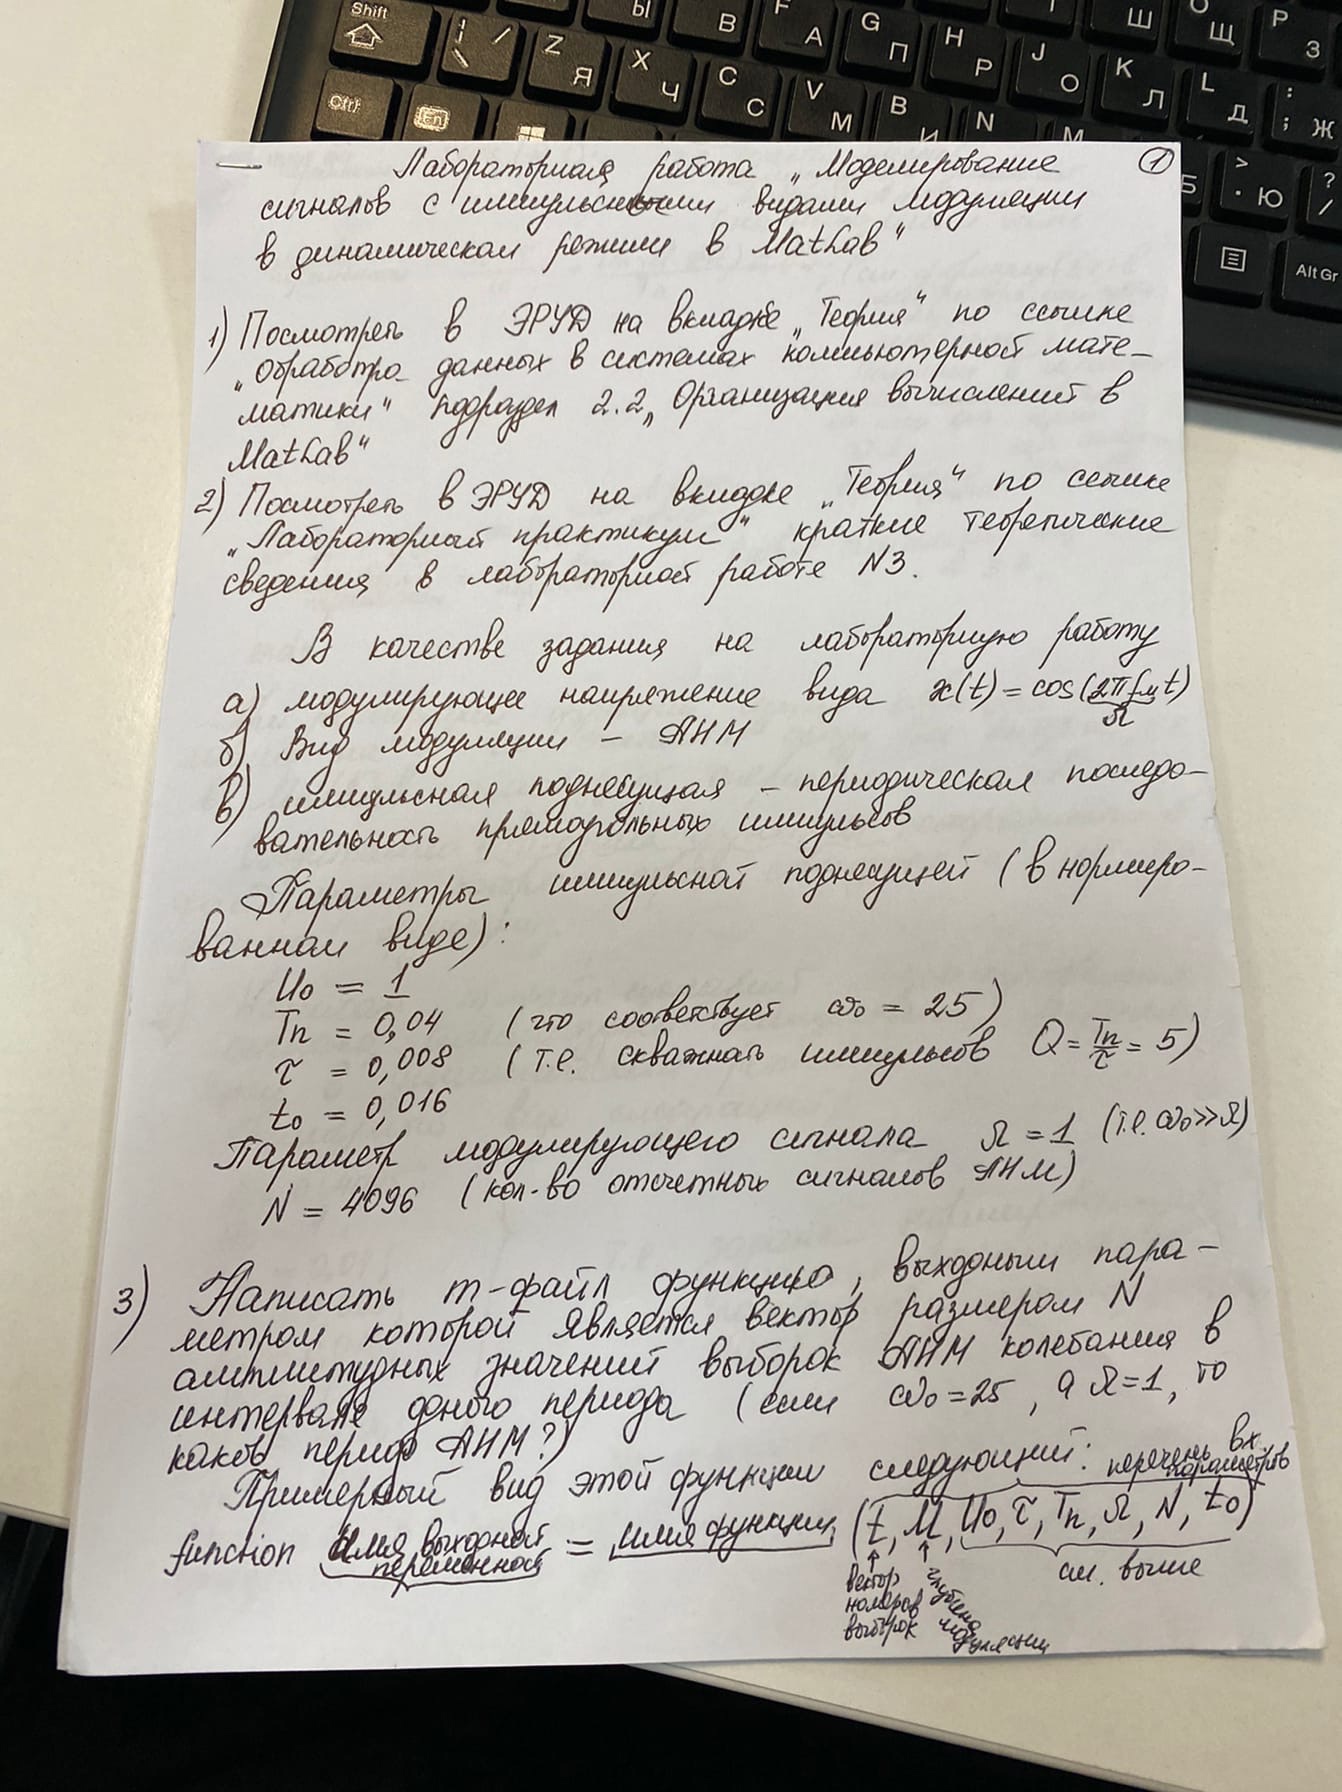 Shift
Ctrl
En
Z Я
X Ч
C С
V М
B И
N
M
Ы
В
F А
G П
H Р
J О
K Л
L Д
; Ж
Ш
Щ
P З
Б
> . Ю
? /
Alt Gr
1
Лабораторная работа „Моделирование
сигналов с импульсными видами модуляции
в динамическом режиме в MatLab“
1) Посмотреть в ЭРУД на вкладке „Теория“ по ссылке
„Обработка данных в системах компьютерной мате-
матики“ подраздел 2.2 „Организация вычислений в
MatLab“
2) Посмотреть в ЭРУД на вкладке „Теория“ по ссылке
„Лабораторный практикум“ краткие теоретические
сведения в лабораторной работе N3.
В качестве задания на лабораторную работу
а) модулирующее напряжение вида x(t) = cos(2πfмt)
Ω
б) Вид модуляции – АИМ
в) импульсная поднесущая – периодическая последо-
вательность прямоугольных импульсов
Параметры импульсной поднесущей (в нормиро-
ванном виде):
U₀ = 1
Tп = 0,04 (что соответствует ω₀ = 25)
τ = 0,008 (т.е. скважность импульсов Q = Tп/τ = 5)
t₀ = 0,016
Параметр модулирующего сигнала Ω = 1 (т.е. ω₀ >> Ω)
N = 4096 (кол-во отсчетных сигналов АИМ)
3) Написать m-файл функцию, выходным пара-
метром которой является вектор размером N
амплитудных значений выборок АИМ колебания в
интервале одного периода (если ω₀ = 25, а Ω = 1, то
каков период АИМ?)
Примерный вид этой функции следующий: перечень вх. параметров
function имя выходной переменной = имя функции (t, M, U₀, τ, Tп, Ω, N, t₀)
вектор номеров выборок
глубина модуляции
см. выше